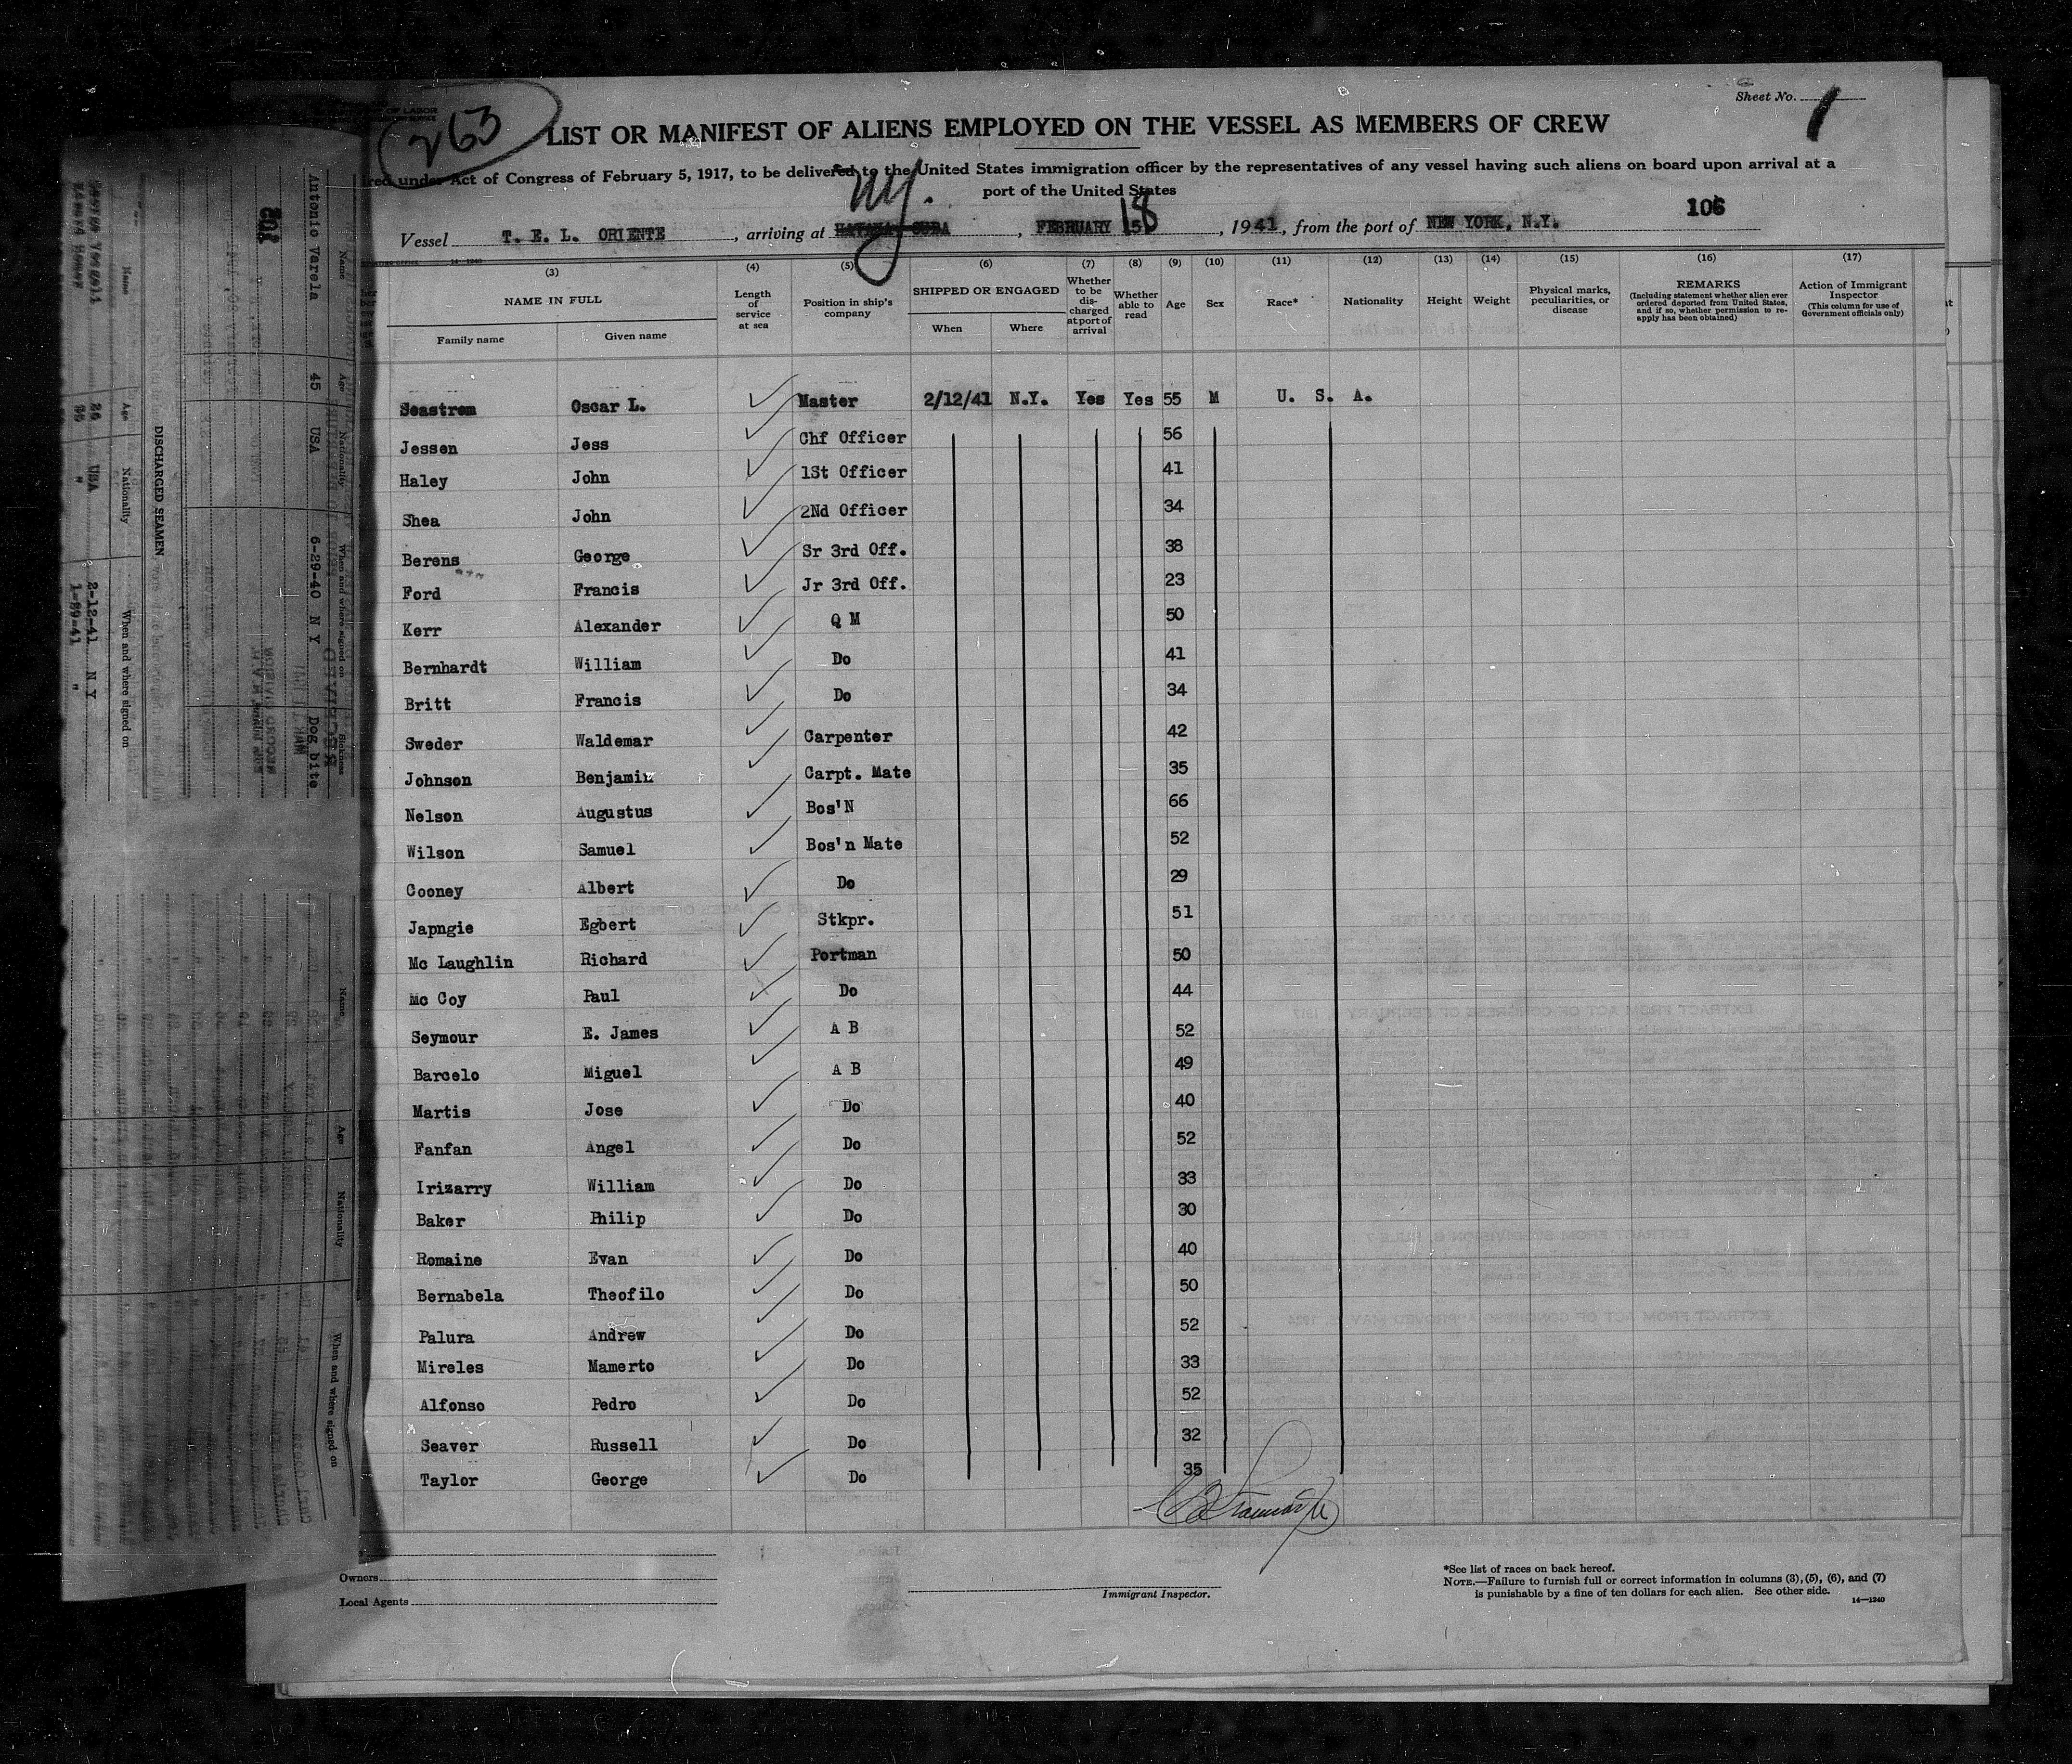 Sheet No. 1
263
LIST OR MANIFEST OF ALIENS EMPLOYED ON THE VESSEL AS MEMBERS OF CREW
under Act of Congress of February 5, 1917, to be delivered to the United States immigration officer by the representatives of any vessel having such aliens on board upon arrival at a
port of the United States
N.Y. 18 106
Vessel T. E. L. ORIENTE, arriving at HAVANA, CUBA, FEBRUARY 15, 1941, from the port of NEW YORK, N.Y.
(3) (4) (5) (6) (7) (8) (9) (10) (11) (12) (13) (14) (15) (16) (17)
NAME IN FULL Length of service at sea Position in ship's company SHIPPED OR ENGAGED Whether to be discharged at port of arrival Whether able to read Age Sex Race* Nationality Height Weight Physical marks, peculiarities, or disease REMARKS (Including statement whether alien ever ordered deported from United States, and if so, whether permission to reapply has been obtained) Action of Immigrant Inspector (This column for use of Government officials only)
Family name Given name When Where
Seastrom Oscar L. Master 2/12/41 N.Y. Yes Yes 55 M U. S. A.
Jessen Jess Chf Officer 56
Haley John 1St Officer 41
Shea John 2Nd Officer 34
Berens George Sr 3rd Off. 38
Ford Francis Jr 3rd Off. 23
Kerr Alexander Q M 50
Bernhardt William Do 41
Britt Francis Do 34
Sweder Waldemar Carpenter 42
Johnson Benjamin Carpt. Mate 35
Nelson Augustus Bos'N 66
Wilson Samuel Bos'n Mate 52
Cooney Albert Do 29
Japngie Egbert Stkpr. 51
Mc Laughlin Richard Portman 50
Mc Coy Paul Do 44
Seymour E. James A B 52
Barcelo Miguel A B 49
Martis Jose Do 40
Fanfan Angel Do 52
Irizarry William Do 33
Baker Philip Do 30
Romaine Evan Do 40
Bernabela Theofilo Do 50
Palura Andrew Do 52
Mireles Mamerto Do 33
Alfonso Pedro Do 52
Seaver Russell Do 32
Taylor George Do 35
Owners
Local Agents
Immigrant Inspector.
*See list of races on back hereof.
NOTE.—Failure to furnish full or correct information in columns (3), (5), (6), and (7)
is punishable by a fine of ten dollars for each alien. See other side.
14—1240
Name Age Nationality When and where signed on Sickness
Antonio Varela 45 USA 6-29-40 N Y Dog bite
DISCHARGED SEAMEN
Name Age Nationality When and where signed on
26 USA 2-12-41 N Y
" 1-29-41 "
Name Age Nationality When and where signed on